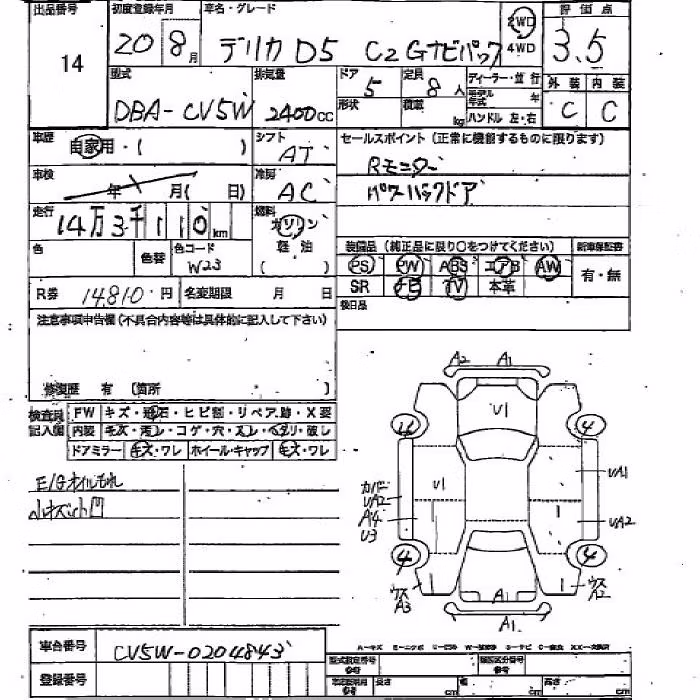 出品番号 初度登録年月 車名・グレード 評価点
14 20 8月 デリカ D5 C2 Gナビパック 2WD 4WD 3.5
型式 排気量 ドア 定員 ディーラー・並行 外装 内装
DBA-CV5W 2400cc 5 8人 モデル年式 年 C C
形状 積載 kg ハンドル 左・右
車歴 自家用・( ) シフト AT セールスポイント (正常に機能するものに限ります)
Rモニター
車検 年 月( 日) 冷房 AC パワーバックドア
走行 14万3千110km 燃料 ガソリン
色 色替 色コード W23 軽油 ( )
装備品 (純正品に限り○をつけてください) 新車保証書
PS PW ABS エアB AW 有・無
SR ナビ TV 本革
R券 14,810円 名変期限 月 日 後日品
注意事項申告欄 (不具合内容等は具体的に記入して下さい)
修復歴 有 (箇所
検査員記入欄 FW キズ・飛石・ヒビ割・リペア跡・X要
内装 キズ・汚レ・コゲ・穴・スレ・ヘタリ・破レ
ドアミラー キズ・ワレ ホイール・キャップ キズ・ワレ
E/Gオイルもれ
A2 A1
U1
4 4
UA1
U1
UA2
A4
U3
UA2
4 4
ウス A3
ウス A2
A1
A1
車台番号 CV5W-0204843
登録番号
型式指定番号 参考 類別区分番号 参考
長さ cm 幅 cm 高さ cm